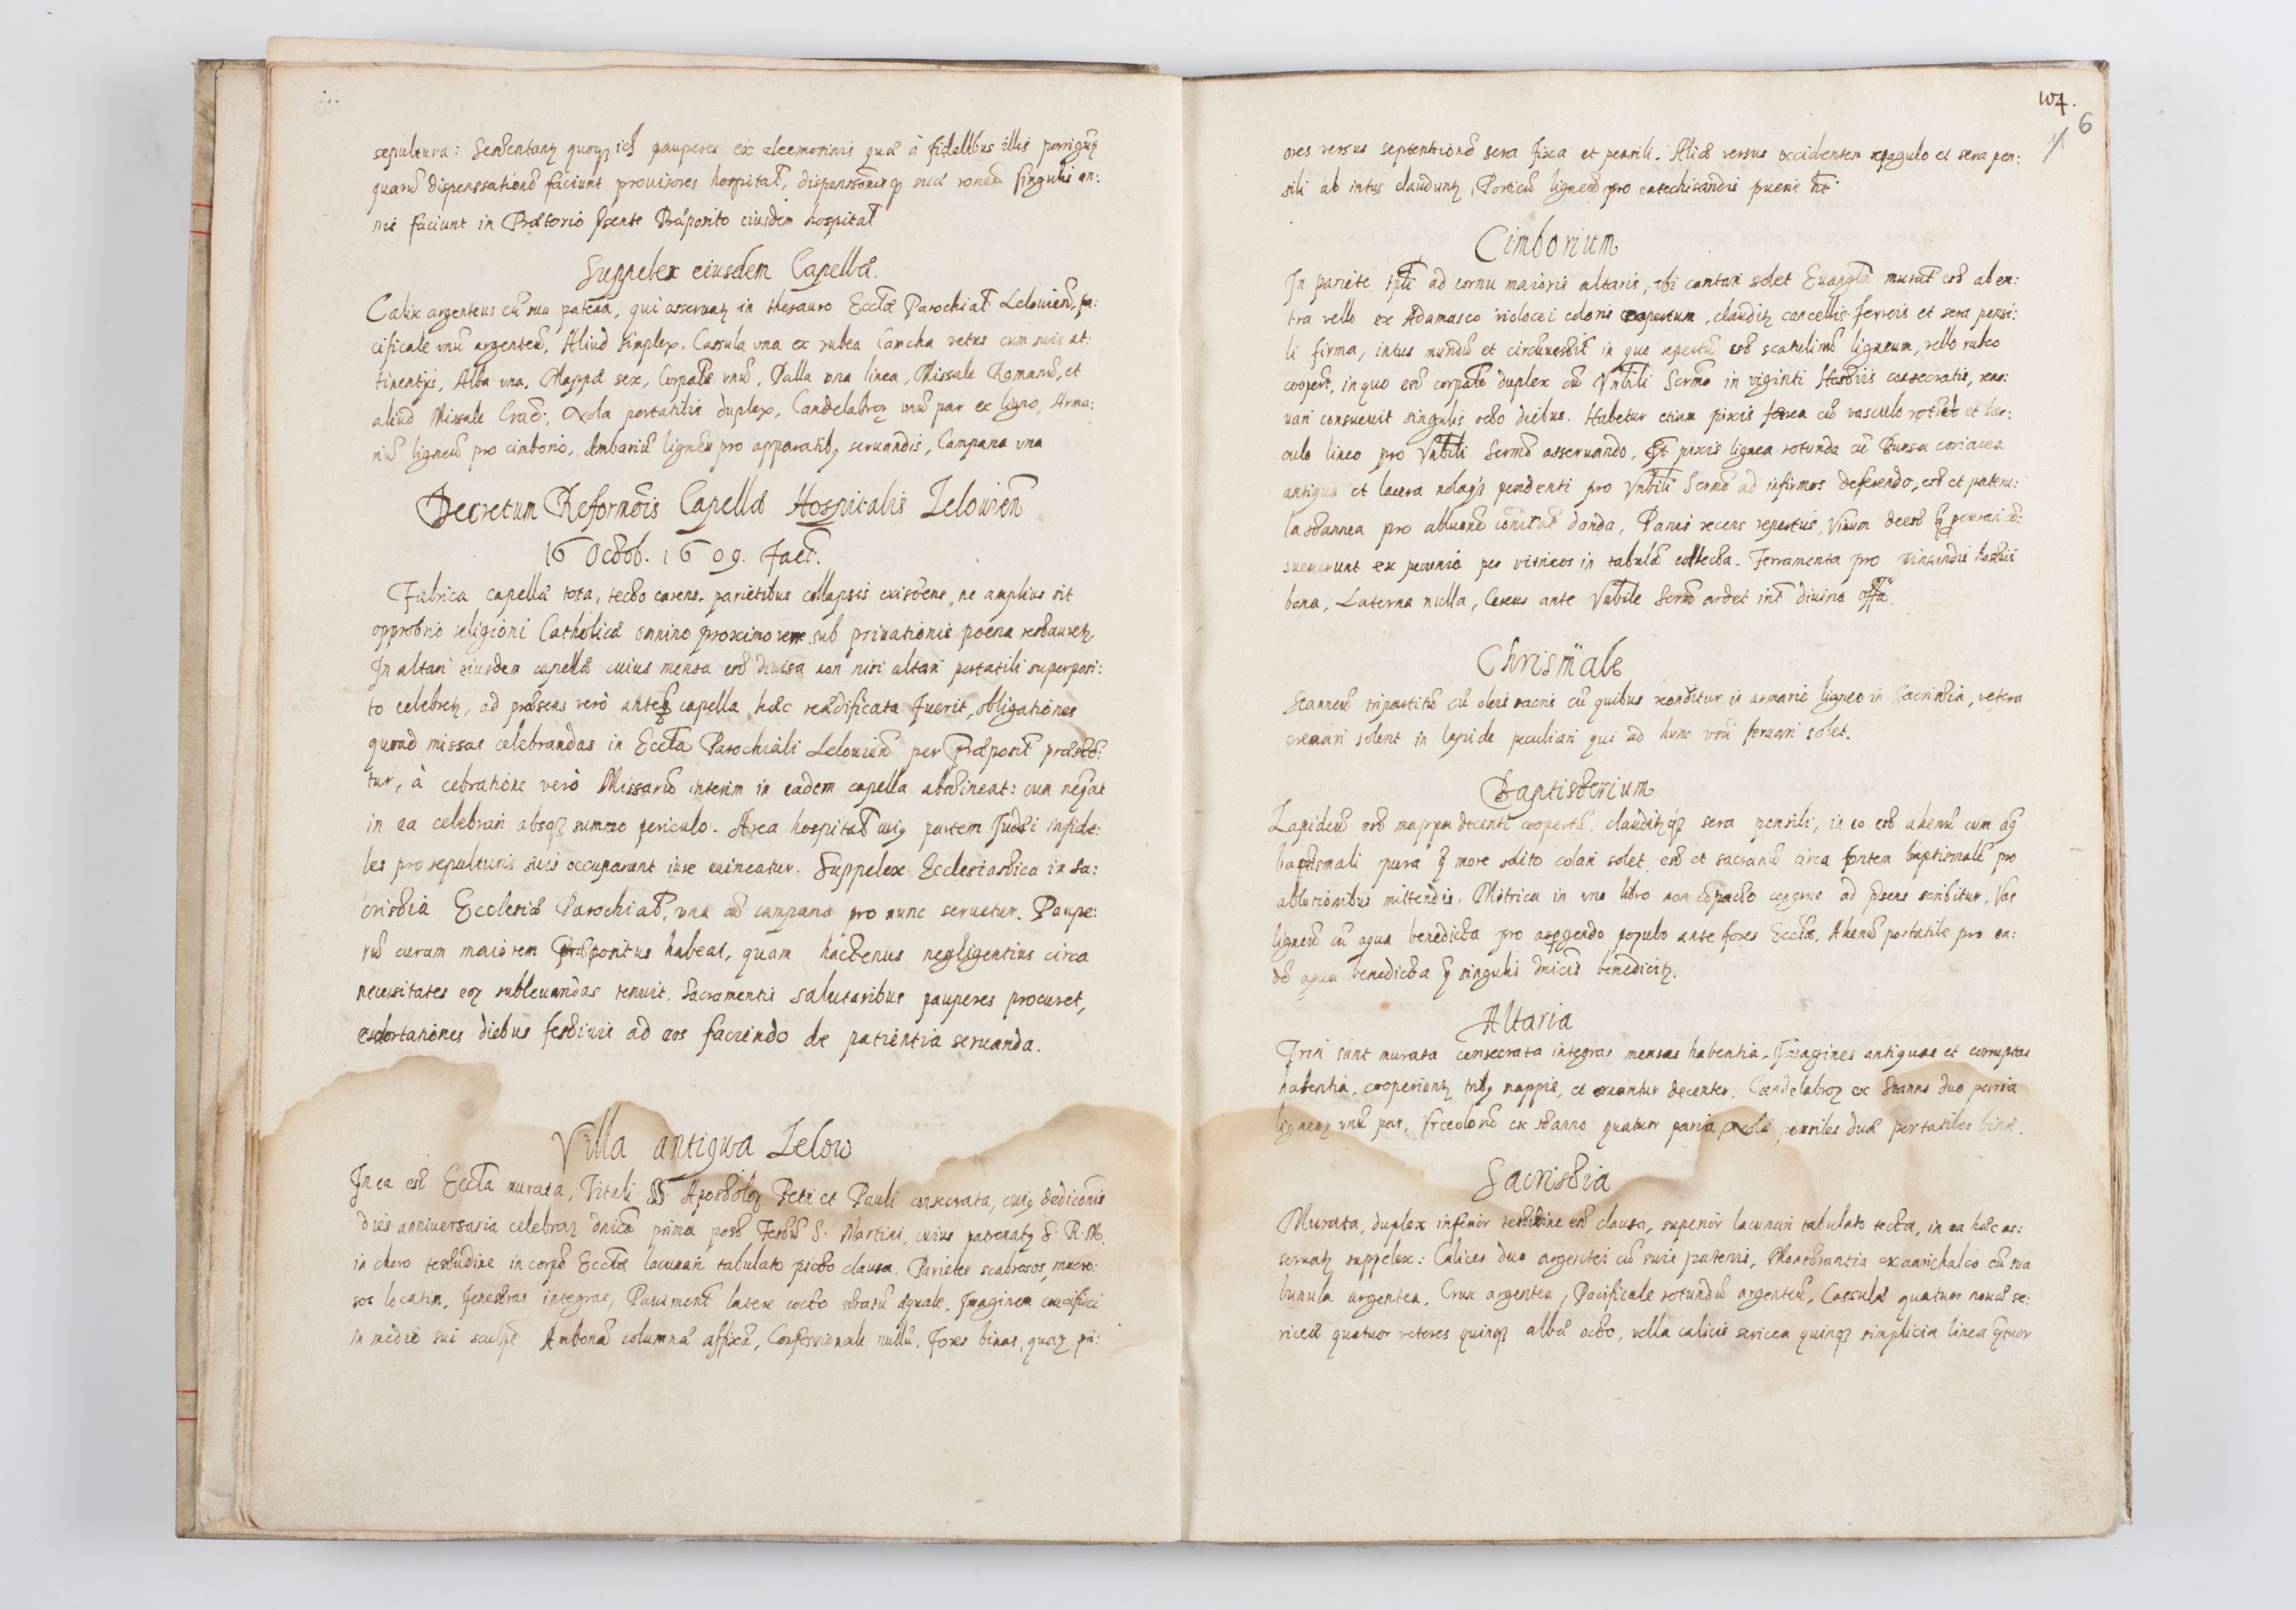 sepultura: Sustentant quoq; ict pauperes ex eleemosinis quæ à fidelibus illis porrigunt
quarū dispenssationē faciunt prouisores hospitał, dispensationisq; suæ ronem singulis an:
nis faciunt in Prætorio pñsente Præposito eiusdem hospitał
Suppelex eiusdem Capellæ.
Calix argenteus cū sua patena, qui asseruat in thesauro Ecclæ Parochiał Lelouień, pa:
cificale vnū argenteū, Aliud simplex. Casula vna ex rubea Camcha vetus cum suis at:
tinentijs, Alba vna, Mappæ sex, Corpałe vnū, Palla vna linea, Missale Romanū, et
aliud Missale Crac:, Nola portatilis duplex, Candelabroꝝ vnū par ex ligno, Arma:
riū ligneū pro cimborio, Armariū ligneū pro apparatibꝫ seruandis, Campana vna
Decretum Reformōis Capellæ Hospitalis Lelouień
16 Octob. 1609. fact.
Fabrica capellæ tota, tecto carens, parietibus collapsis existens, ne amplius sit
opprobrio religioni Catholicæ omnino proximo vere sub priuationis poena restauret.
In altari eiusdem capellæ cuius mensa est diuisa non nisi altari portatili superposi:
to celebret, ad præsens verò anteq̃ capella hæc reædificata fuerit, obligationes
quoad missas celebrandas in Eccła Parochiali Lelouień per Præposit̄ præste:
tur, à cebratione verò Missarū interim in eadem capella abstineat: cum neq̃at
in ea celebrari absqꝫ summo periculo. Area hospitał cuiꝯ partem Judæi infide:
les pro sepulturis suis occuparunt iure euincatur. Suppelex Ecclesiastica in sa:
cristia Ecclesiæ Parochiał, vna cū campana pro nunc seruetur. Paupe:
rū curam maiorem Præpositus habeat, quam hactenus negligentius circa
necessitates eoꝝ subleuandas tenuit. Sacramentis salutaribus pauperes procuret,
exhortationes diebus festiuis ad eos faciendo de patientia seruanda.
Villa antiqua Lelow
In ea est Eccła murata, Tituli SS. Apostoloꝝ Petri et Pauli consecrata, cuiꝯ dedicōnis
dies anniuersaria celebrat dnica prima post Festū S. Martini, cuius patronatꝯ S. R. M.
in choro testudine in corpe Ecclæ lacunari tabulato picto clausa. Parietes scabrosos, muco:
sos locatim, fenestras integras, Pauiment̄ latere cocto stratū æquale, Imaginem crucifixi
in medio sui sculpt Ambonā columnæ affixā, Confessionale nullū. Fores binas, quaꝝ pri:
104.
6
ores versus septentrionē sera fixa et pensili. Aliæ versus occidentem repagulo et sera pen:
sili ab intus claudunt, Porticū ligneū pro catechisandis pueris ht.
Cimborium
In pariete templi ad cornu maioris altaris, vbi cantari solet Euangłm murat̄ est ab ex:
tra vello ex Adamasco violacei coloris coopertum, claudit cancellis ferreis et sera pensi:
li firma, intus mundū et circūuestit̄ in quo repertū est scatulinū ligneum, vello rubeo
coopert̄, in quo est corpałe duplex cū Vnbili Sacrmo in viginti Hostiis consecratis, reno:
uari consueuit singulis octo diebus. Habetur etiam pixis ferrea cū vasculo rotūdo et sac:
culo lineo pro Vnbili Sacrmo asseruando, Et pixis lignea rotunda cū Bursa coriacea
antiqua et lacera nolaqꝫ pendenti pro Vnbili Sacrmo ad infirmos deferendo, est et pateru:
la stannea pro ablutione comīcat̄ danda, Panis recens repertus, Vinum deest q procurari cō:
sueuerunt ex pecunia per vitricos in tabulā collecta. Ferramenta pro pinsendis hostiis
bona, Laterna nulla, Cereus ante Vnbile Sacrm ardet int̄ diuina offa.
Chrismale
Stanneū tripartitū cū oleis sacris cū quibus reconditur in armario ligneo in Sacristia, vetera
cremari solent in lapide peculiari qui ad hunc vsū seruari solet.
Baptisterium
Lapideū est mappa decenti coopertū. clauditqꝫ sera pensili, in eo est ahenū cum aq̃
baptismali pura q more solito colari solet, est et sacrariū circa fontem baptismalē pro
ablutionibus mittendis. Metrica in vno libro non cōpacto congrue ad pñsens scribitur. Vas
ligneū cū aqua benedicta pro aspergendo populo ante fores Ecclæ. Ahenū portatile pro ea:
dē aqua benedicta q singulis dnicis benedicit.
Altaria
Trin sunt murata consecrata integras mensas habentia. Imagines antiquas et corruptas
habentia, cooperiunt tribꝯ mappis, et ornantur decenter. Candelabroꝝ ex stanno duo paria
ligneoꝝ vnū par, Vrceolorū ex stanno quatuor paria nolæ pensiles duæ portatiles binæ.
Sacristia
Murata, duplex inferior testudine est clausa, superior lacunari tabulato tecta, in ea hæc as:
seruatꝫ suppelex: Calices duo argentei cū suis patenis, Monstrantia ex aurichalco cū sua
lunula argentea. Crux argentea, Pacificale rotundū argenteū, Casulæ quatuor nouæ se:
riceæ quatuor veteres quinqꝫ albæ octo, vella calicis sericea quinqꝫ simplicia linea q̃tuor